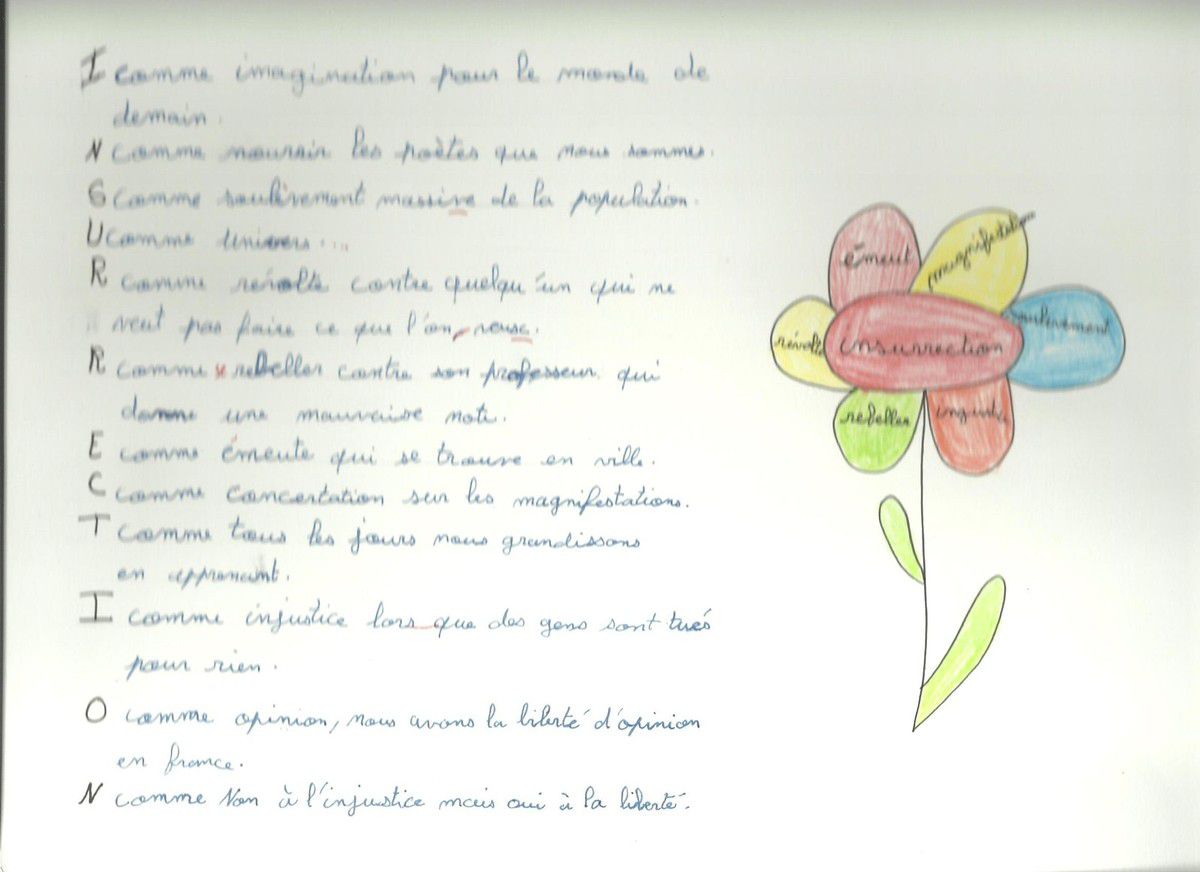 I comme imagination pour le monde de
demain.
N comme nourrir les poètes que nous sommes.
S comme soulèvement massive de la population.
U comme Univers...
R comme révolte contre quelqu'un qui ne
veut pas faire ce que l'on, veuse.
R comme rebeller contre son professeur qui
donne une mauvaise note.
E comme émeute qui se trouve en ville.
C comme concertation sur les magnifestations.
T comme tous les jours nous grandissons
en apprenant.
I comme injustice lors que des gens sont tués
pour rien.
O comme opinion, nous avons la liberté d'opinion
en france.
N comme Non à l'injustice mais oui à la liberté.
émeut
magnifestation
révolte
insurrection
soulèvement
rebeller